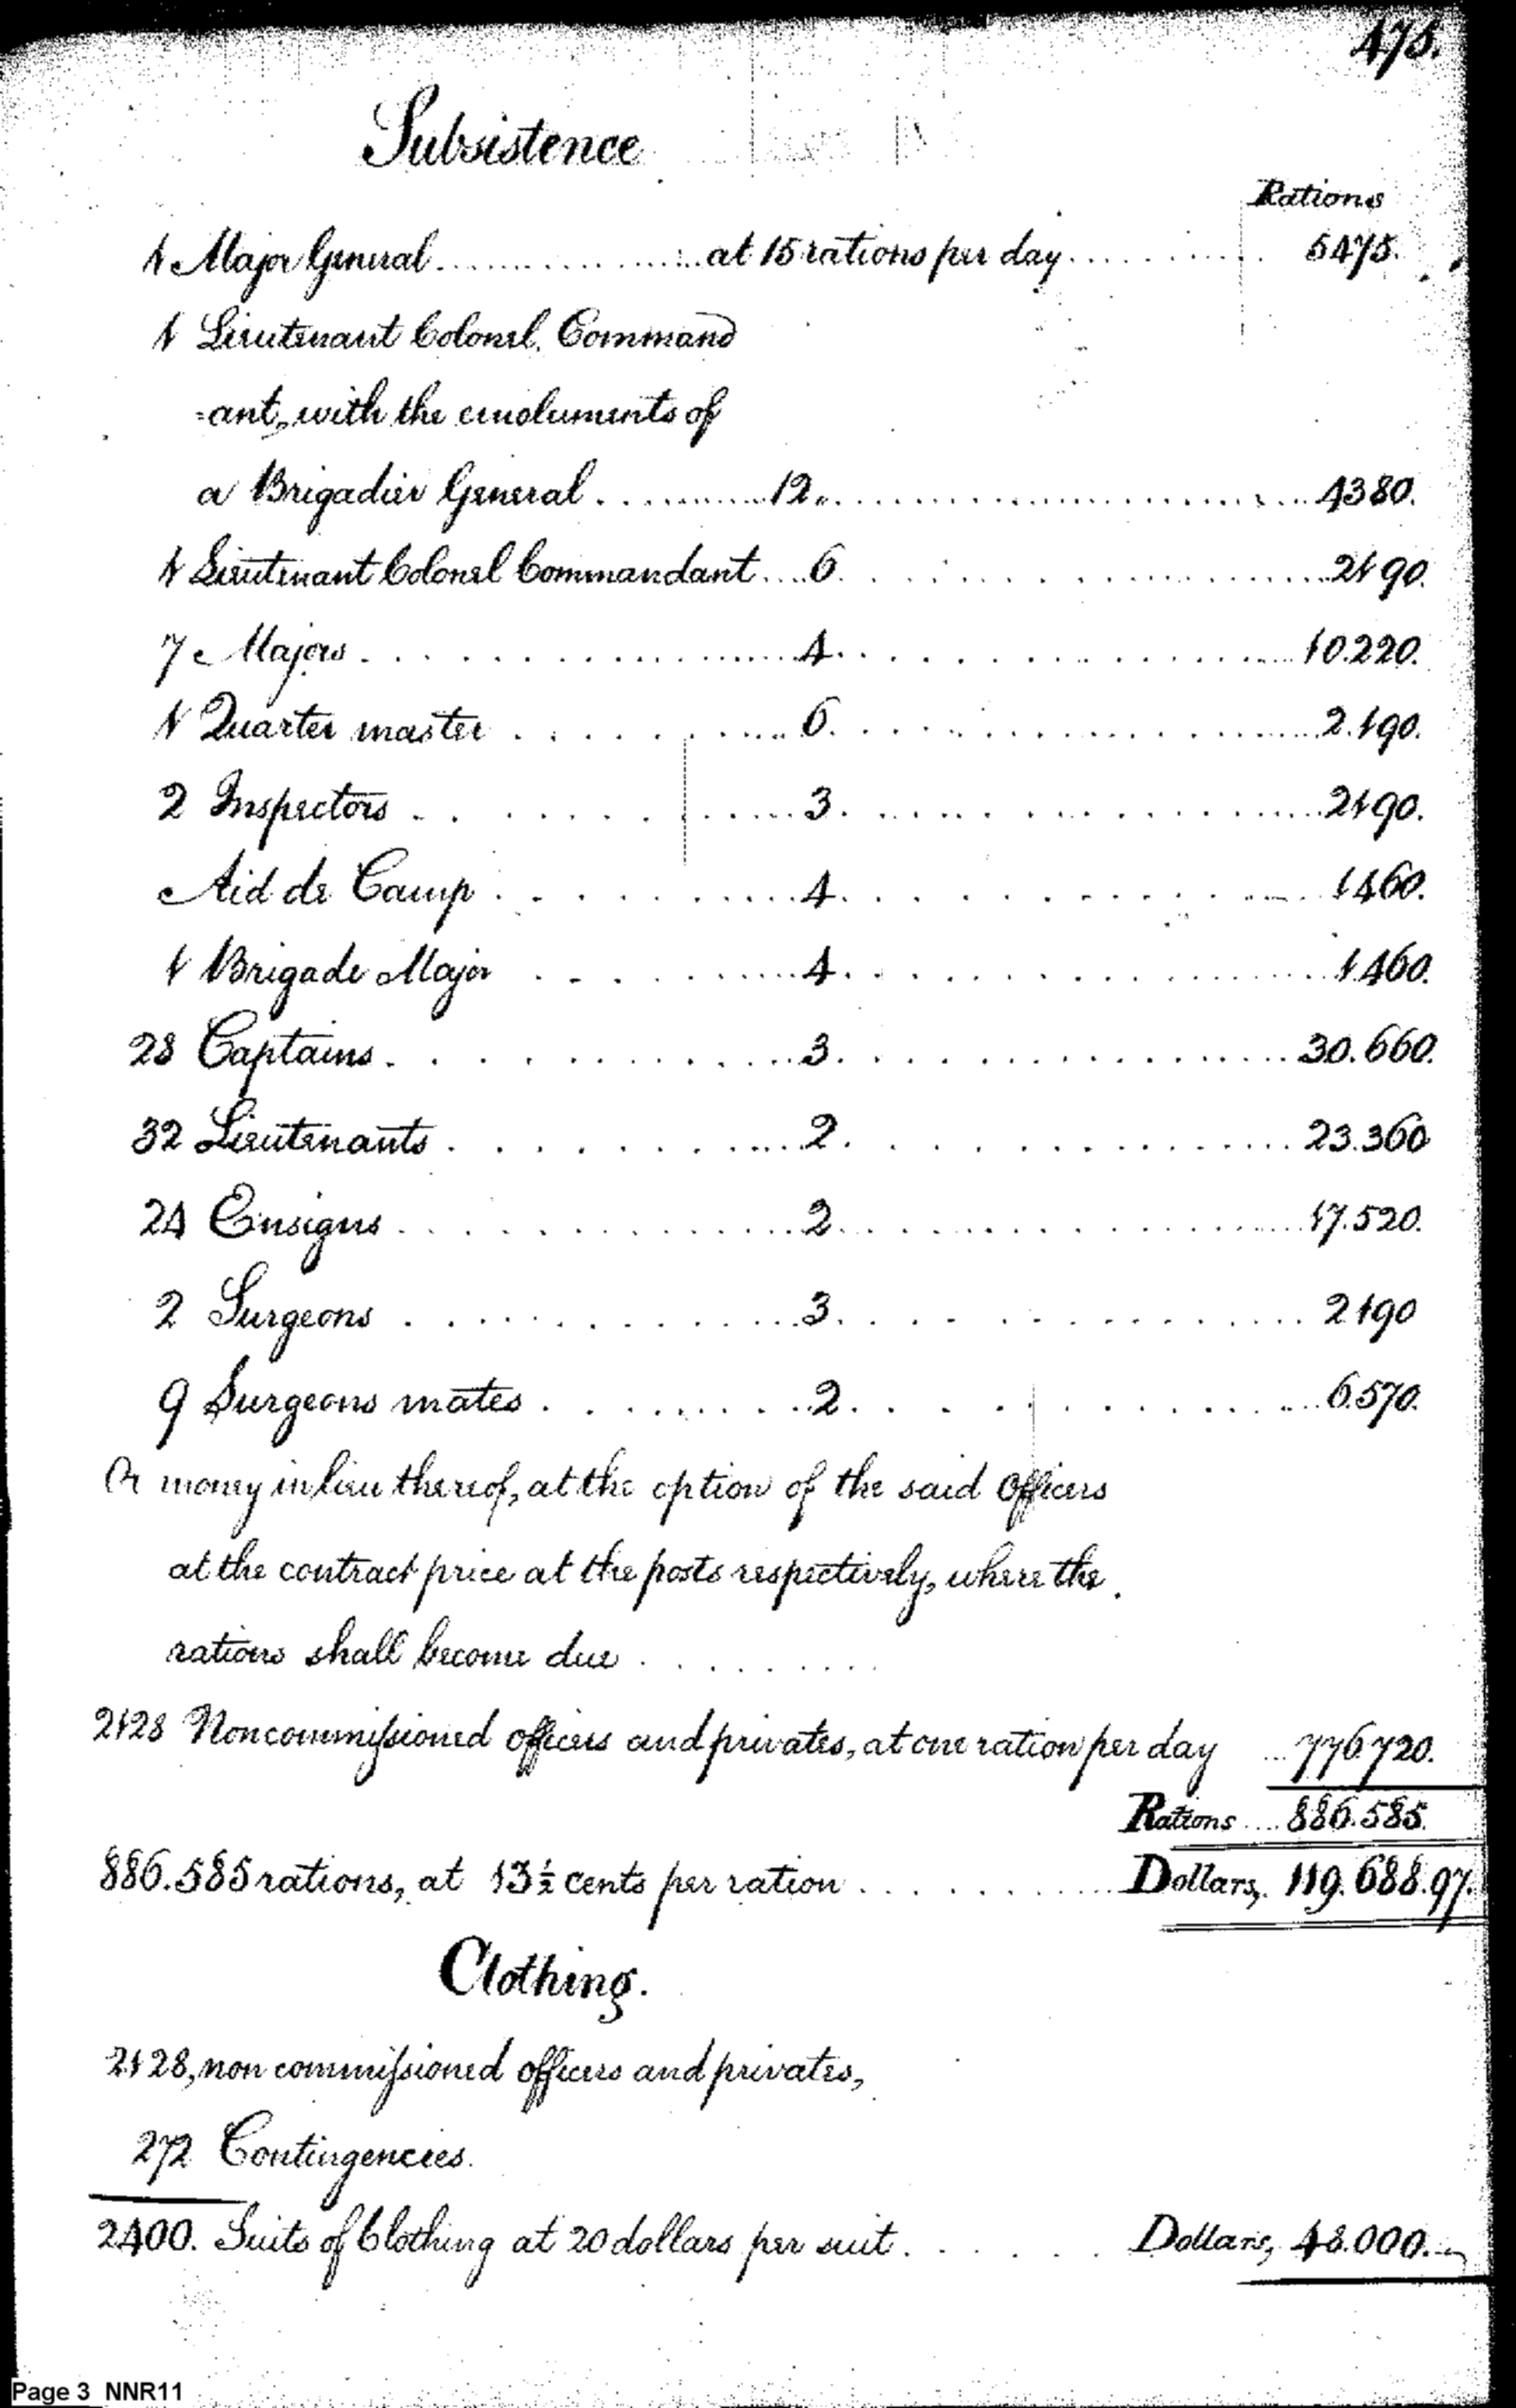 475.
Subsistence
Rations
1 Major General ................ at 15 rations per day ............ 5475.
1 Lieutenant Colonel, Command
=ant, with the emoluments of
a Brigadier General ............ 12 ............ 4380.
1 Lieutenant Colonel Commandant .... 6 ............ 2190.
7 Majors ............ 4 ............ 10.220.
1 Quarter master ............ 6 ............ 2.190.
2 Inspectors ............ 3 ............ 2190.
Aid de Camp ............ 4 ............ 1460.
1 Brigade Major ............ 4 ............ 1.460.
28 Captains ............ 3 ............ 30.660.
32 Lieutenants ............ 2 ............ 23.360
24 Ensigns ............ 2 ............ 17.520.
2 Surgeons ............ 3 ............ 2190
9 Surgeons mates ............ 2 ............ 6.570.
Or money in lieu thereof, at the option of the said Officers
at the contract price at the posts respectively, where the
rations shall become due .........
2128 Noncommissioned officers and privates, at one ration per day ... 776.720.
Rations .... 886.585.
886.585 rations, at 13½ cents per ration ............ Dollars, 119.688.97.
Clothing.
2128, non commissioned officers and privates,
272 Contingencies.
2400. Suits of Clothing at 20 dollars per suit ....... Dollars, 48.000.
Page 3 NNR11